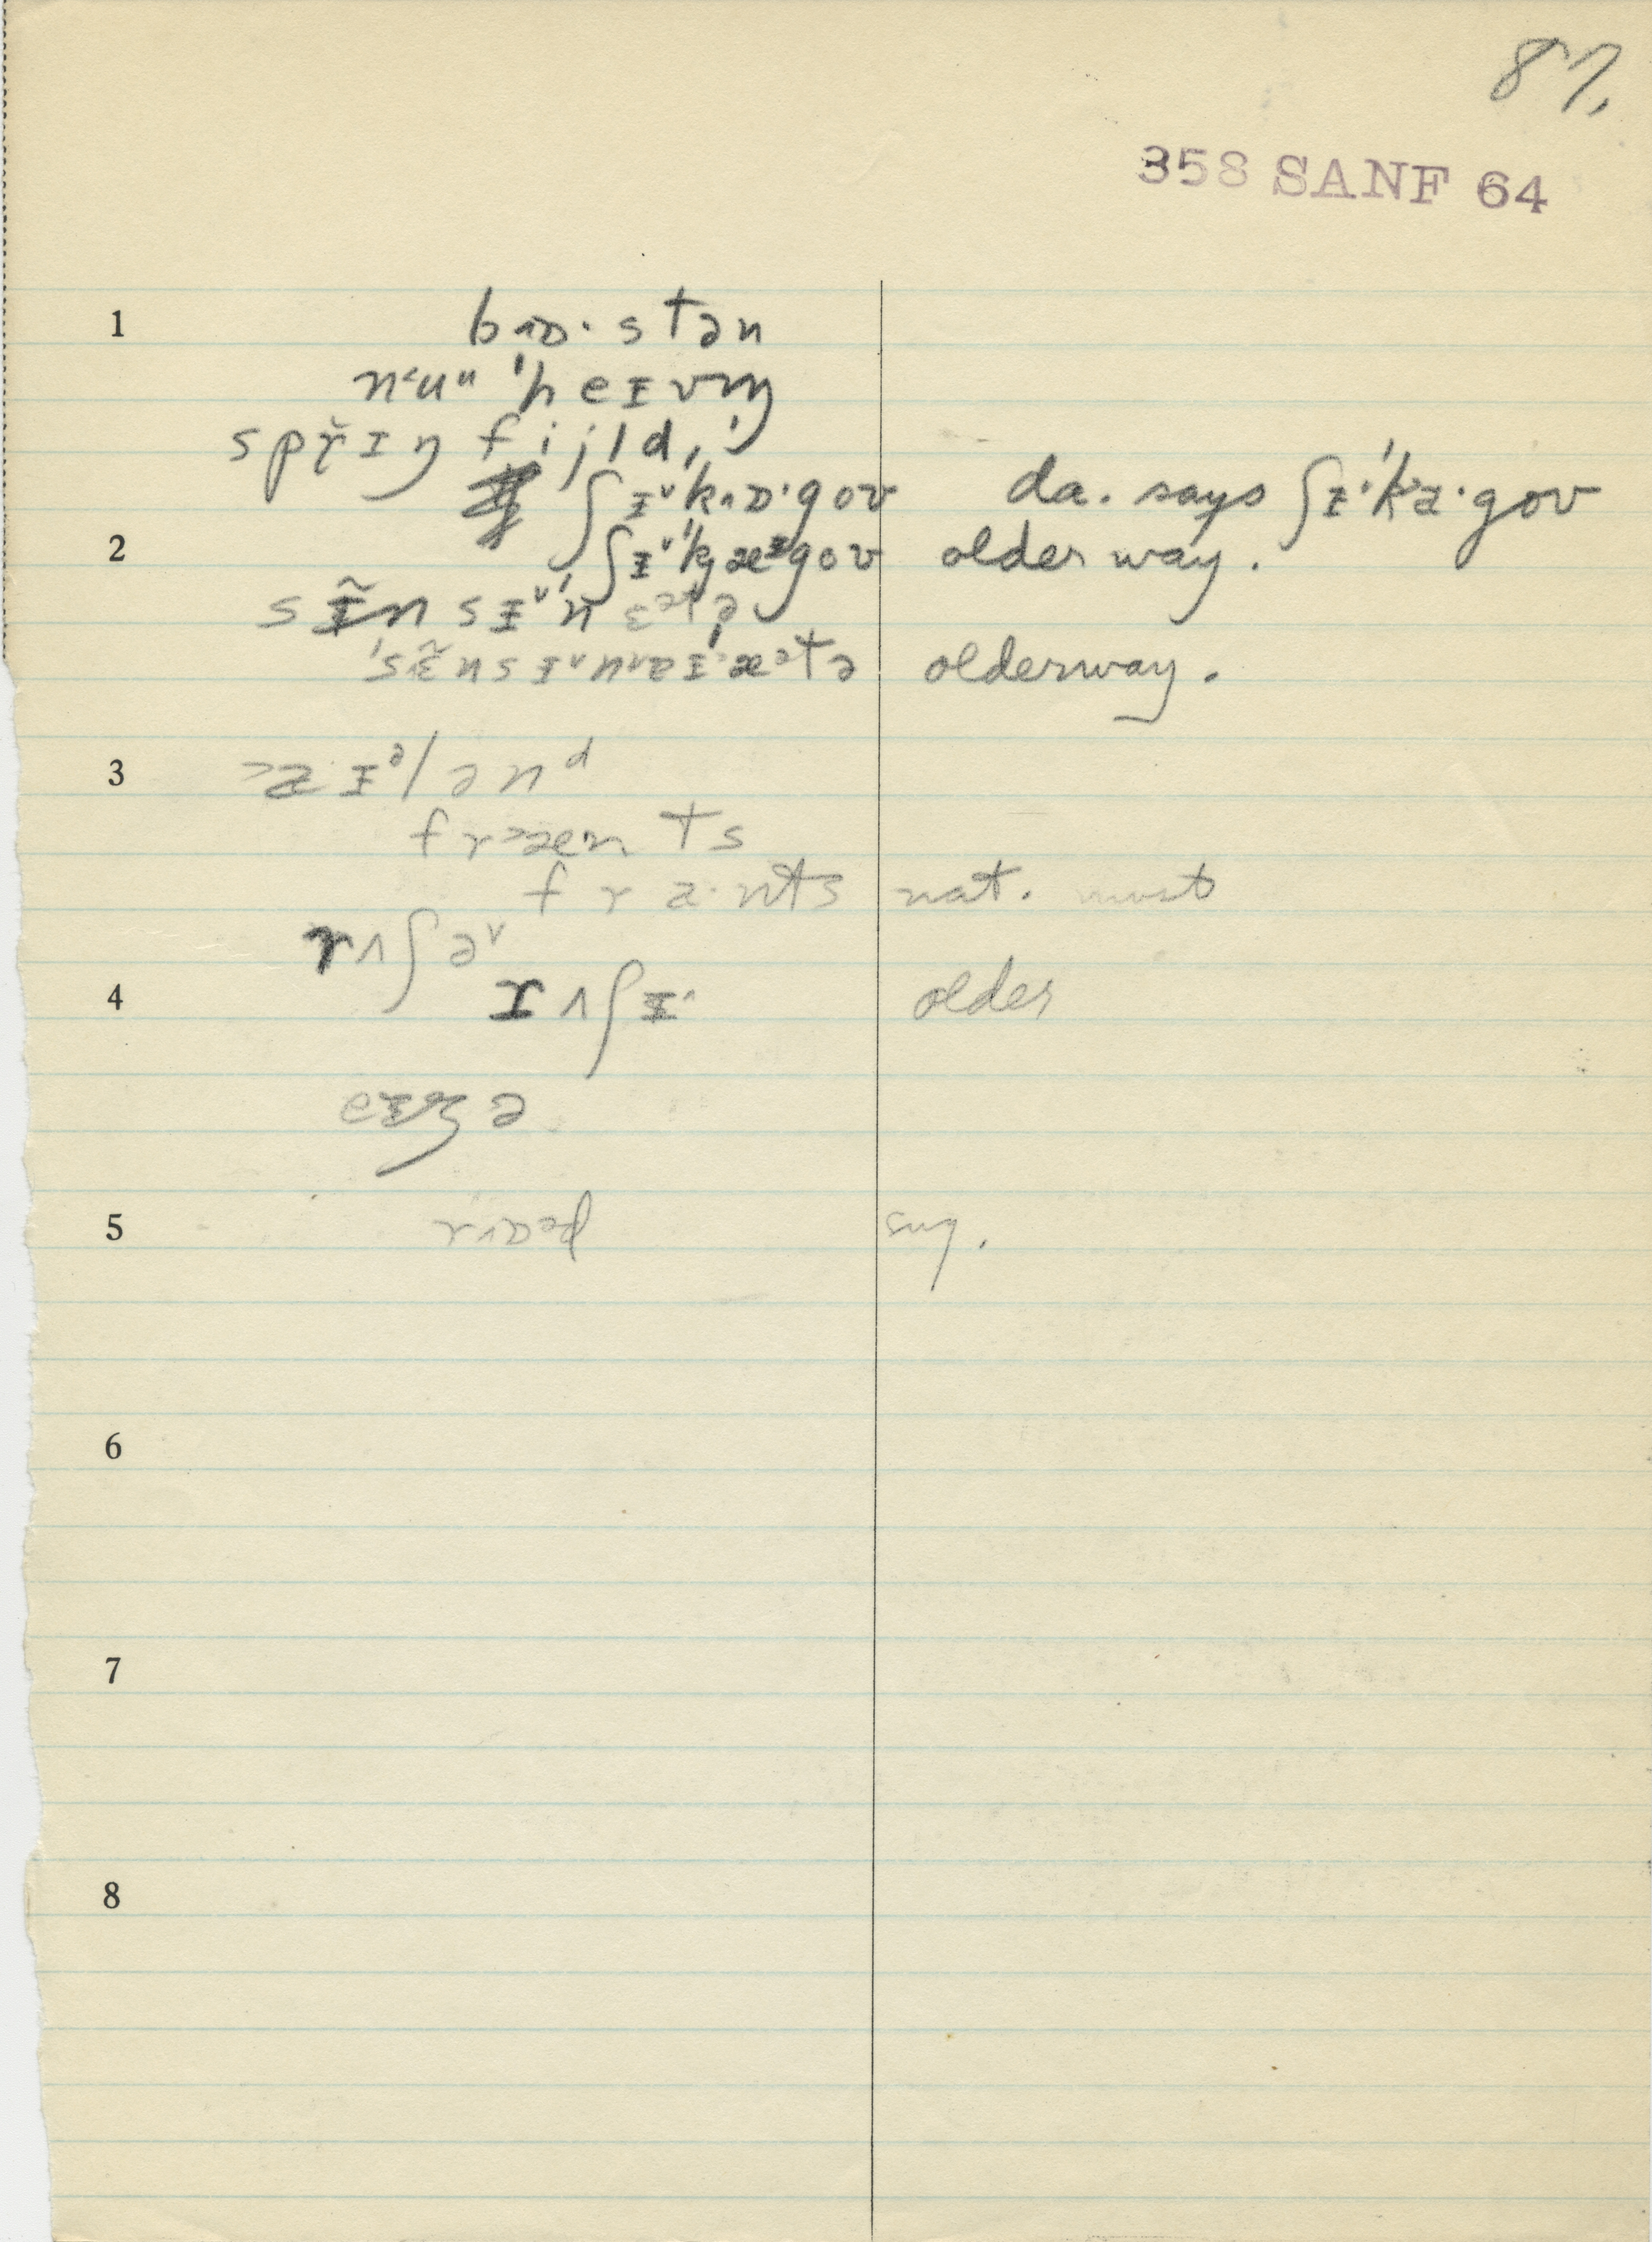 87.
358 SANF 64
1 bɒ·stən
nuᵘ 'heɪvn̩
sprɪŋ fijld,
ʃɪ˅'kɒ·gov da. says ʃɪ'ka·gov
2 ʃɪ˅'kæᶦgov older way.
sɪ̃nsɪ˅'nɛᵊtə
'sɛ̃nsɪ˅næᵊtə olderway.
3 aɪᵊlənᵈ
frænts
fra·nts nat. most
rʌʃə˅
4 rʌʃɪ older
eɪʒə
5 sug.
6
7
8